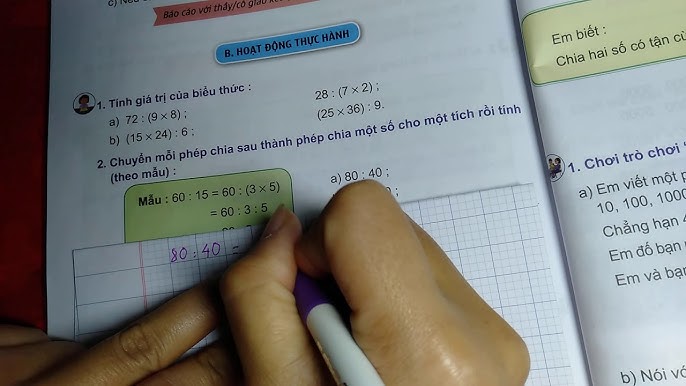 c) Nếu
Báo cáo với thầy/cô giáo kết
B. HOẠT ĐỘNG THỰC HÀNH
1. Tính giá trị của biểu thức :
a) 72 : (9 × 8) ;
28 : (7 × 2) ;
b) (15 × 24) : 6 ;
(25 × 36) : 9.
2. Chuyển mỗi phép chia sau thành phép chia một số cho một tích rồi tính
(theo mẫu) :
Mẫu : 60 : 15 = 60 : (3 × 5)
= 60 : 3 : 5
a) 80 : 40 ;
80 : 40 =
Em biết :
Chia hai số có tận
1. Chơi trò chơi
a) Em viết một
10, 100, 1000
Chẳng hạn
Em đố bạn
Em và bạn
b) Nói